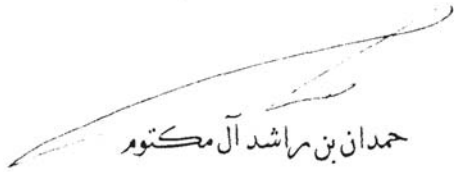 حمدان بن راشد آل مكتوم